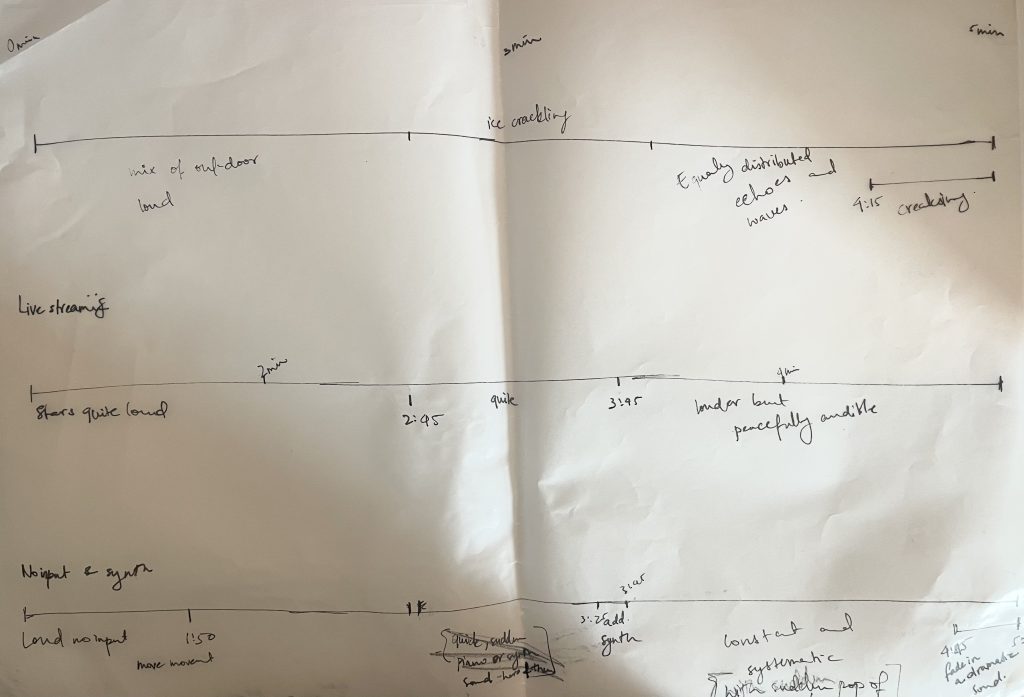 0 min
3 min
5 min
ice crackling
mix of out-door
loud
Equaly distributed
echoes and
waves.
4:15 creaking.
Live streaming
2 min
4 min
Stars quite loud
2:45
quite
3:45
louder but
peacefully audible
No input & synth
Loud no input
1:50
move movent
quick, sudden
piano or synth
sound
3:25 add
synth
3:45
constant and
systematic
with sudden pop of
4:45
fade in
a dramatic
sound.